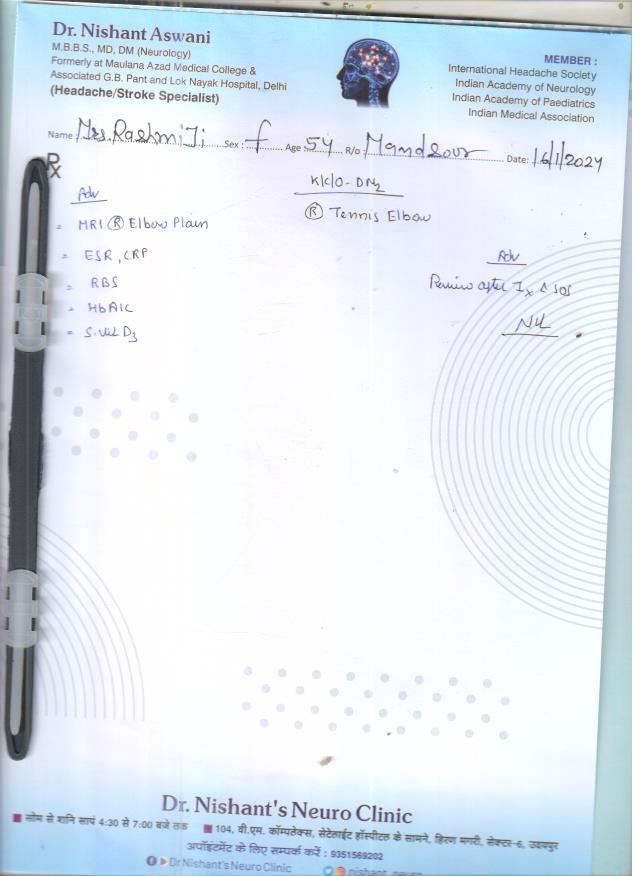 Dr. Nishant Aswani
M.B.B.S., MD, DM (Neurology)
Formerly at Maulana Azad Medical College &
Associated G.B. Pant and Lok Nayak Hospital, Delhi
(Headache/Stroke Specialist)
MEMBER :
International Headache Society
Indian Academy of Neurology
Indian Academy of Paediatrics
Indian Medical Association
Name Mrs. Rashmi Ji Sex : f Age : 54 R/o : Mandsour Date: 16/1/2024
Rx
K/C/O - DM2
Ⓡ Tennis Elbow
Adv
- MRI Ⓡ Elbow Plain
- ESR, CRP
- RBS
- HbA1C
- S. Vit D3
Adv
Review after Ix & SOS
Dr. Nishant's Neuro Clinic
सोम से शनि सायं 4:30 से 7:00 बजे तक 104, वी.एम. कॉम्पलेक्स, सेटेलाईट हॉस्पीटल के सामने, हिरण मगरी, सेक्टर-6, उदयपुर
अपॉइंटमेंट के लिए सम्पर्क करें : 9351569202
Dr Nishant's Neuro Clinic nishant_neuro